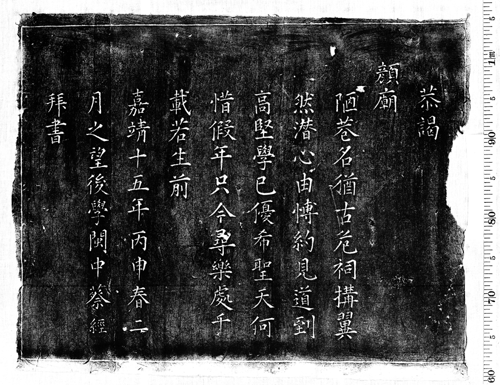 恭謁
顔廟
陋巷名猶古危祠搆翼
然潛心由愽約見道到
高堅學已優希聖天何
惜假年只今尋樂處千
載若生前
嘉靖十五年丙申春二
月之望後學閩中蔡經
拜書